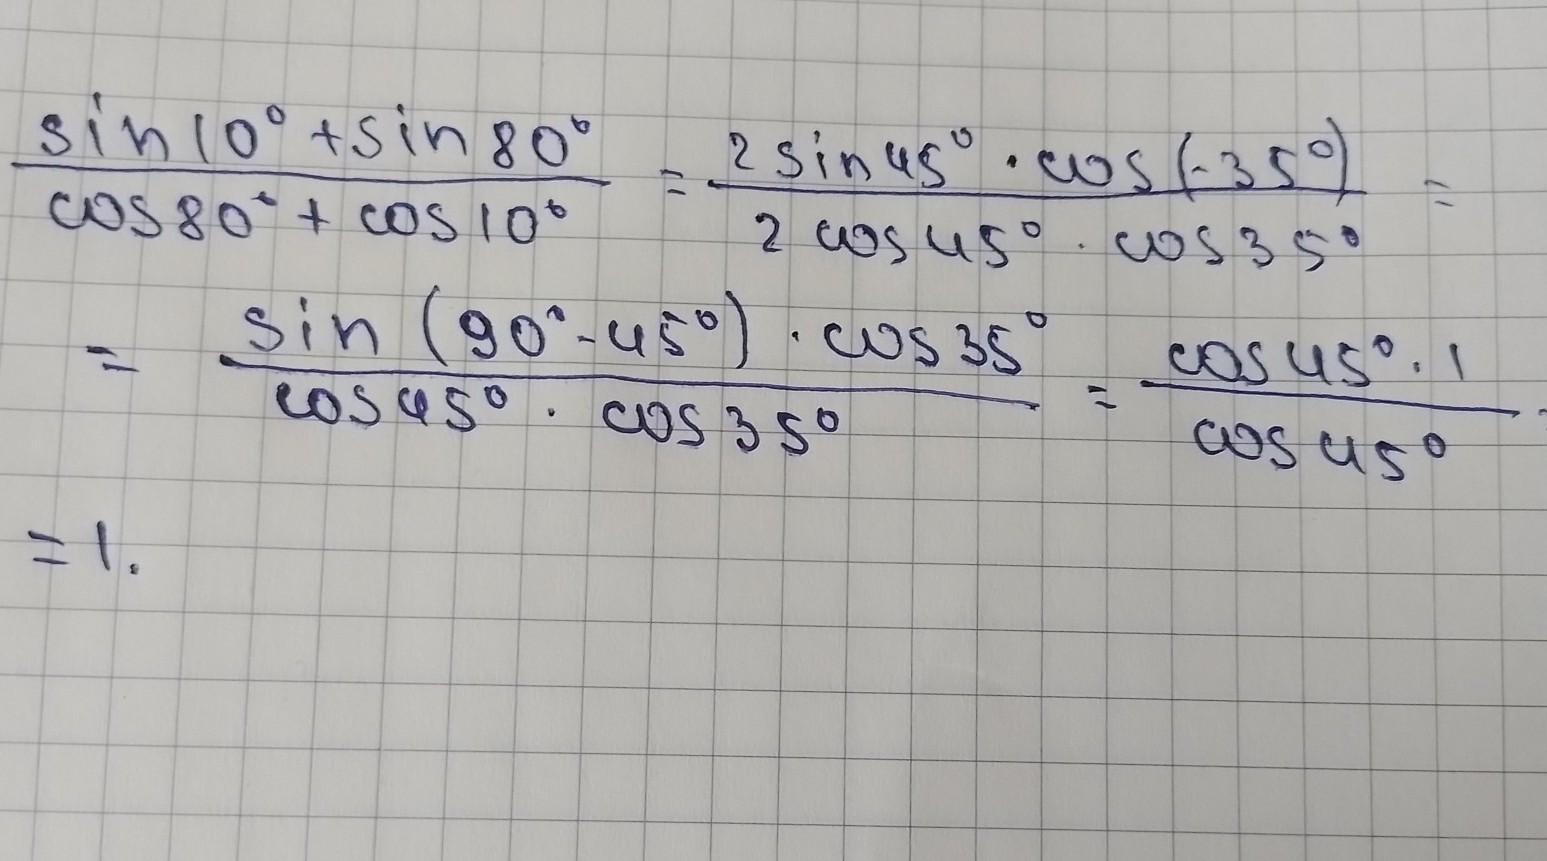 (sin 10° + sin 80°)/(cos 80° + cos 10°) = (2 sin 45° · cos(-35°))/(2 cos 45° · cos 35°) =
= (sin (90° - 45°) · cos 35°)/(cos 45° · cos 35°) = (cos 45° · 1)/(cos 45°) =
= 1.